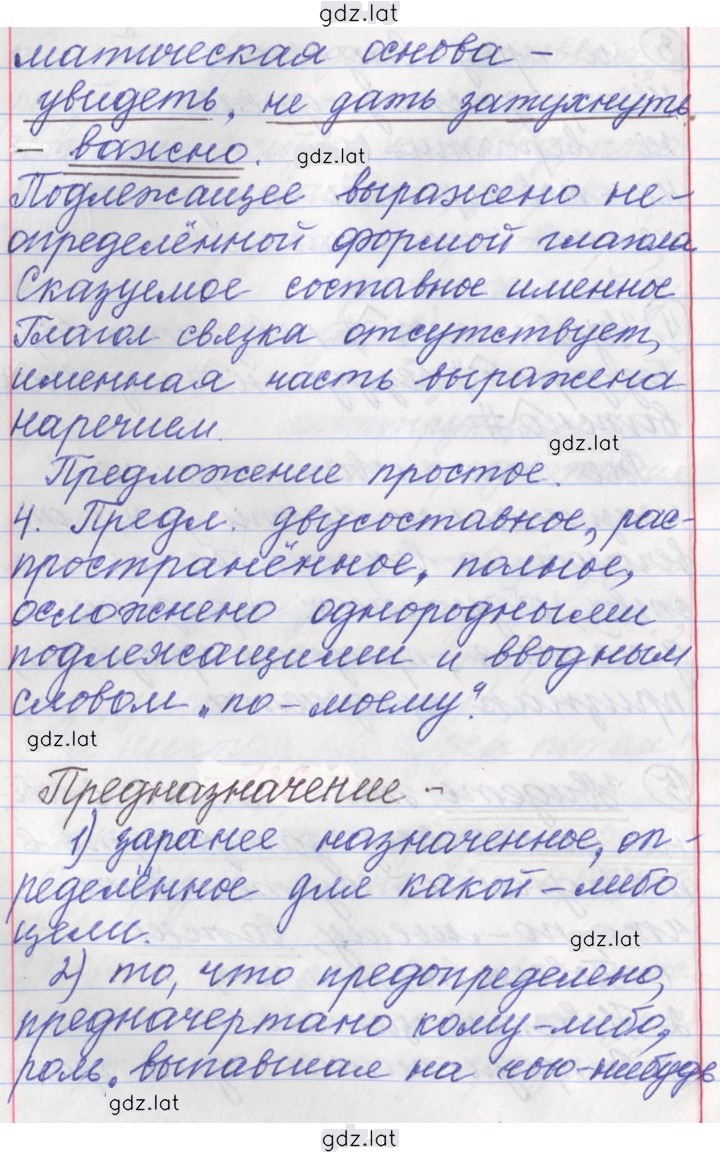 gdz.lat
матическая основа –
увидеть, не дать затухнуть
– важно.
gdz.lat
Подлежащее выражено не-
определённой формой глагола
Сказуемое составное именное
Глагол связка отсутствует,
именная часть выражена
наречием.
gdz.lat
Предложение простое.
4. Предл. двусоставное, рас-
пространённое, полное,
осложнено однородными
подлежащими и вводным
словом „по-моему".
gdz.lat
Предназначение –
1) заранее назначенное, оп-
ределённое для какой-либо
цели.
gdz.lat
2) то, что предопределено,
предначертано кому-либо,
роль, выпавшая на чью-нибудь
gdz.lat
gdz.lat